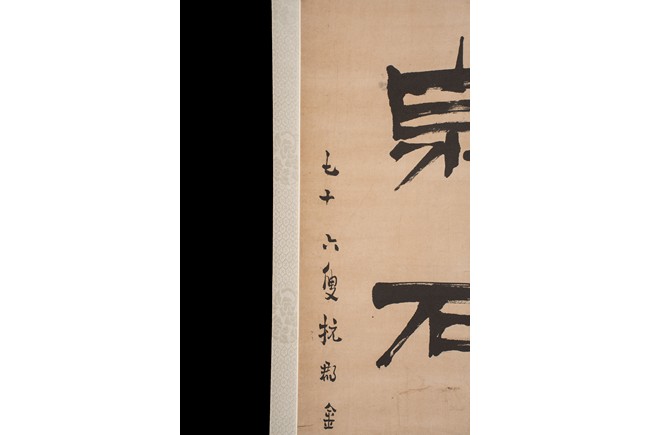 石
七十六叟杭郡金